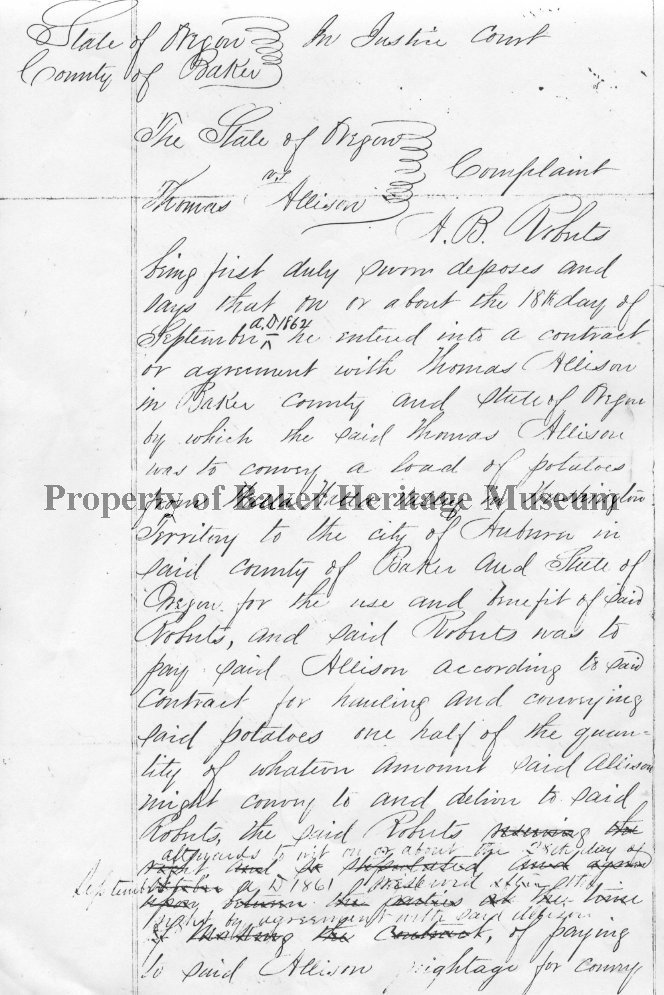 State of Oregon In Justice Court
County of Baker
The State of Oregon
vs Complaint
Thomas Allison
A. B. Roberts
being first duly sworn deposes and
says that on or about the 18th day of
September A.D 1862 he entered into a contract
or agreement with Thomas Allison
in Baker county and State of Oregon
by which the said Thomas Allison
was to convey a load of potatoes
from Walla Walla Washington
Property of Baker Heritage Museum
Territory to the city of Auburn in
said county of Baker and State of
Oregon for the use and benefit of said
Roberts, and said Roberts was to
pay said Allison according to said
Contract for hauling and conveying
said potatoes one half of the quan-
tity of whatever amount said Allison
might convey to and deliver to said
Roberts, the said Roberts reserving the
afterwards to wit on or about the 28th day of
right and
September A D 1861
between the parties at the time
right by agreement with said Allison
the contract, of paying
to said Allison freightage for convey